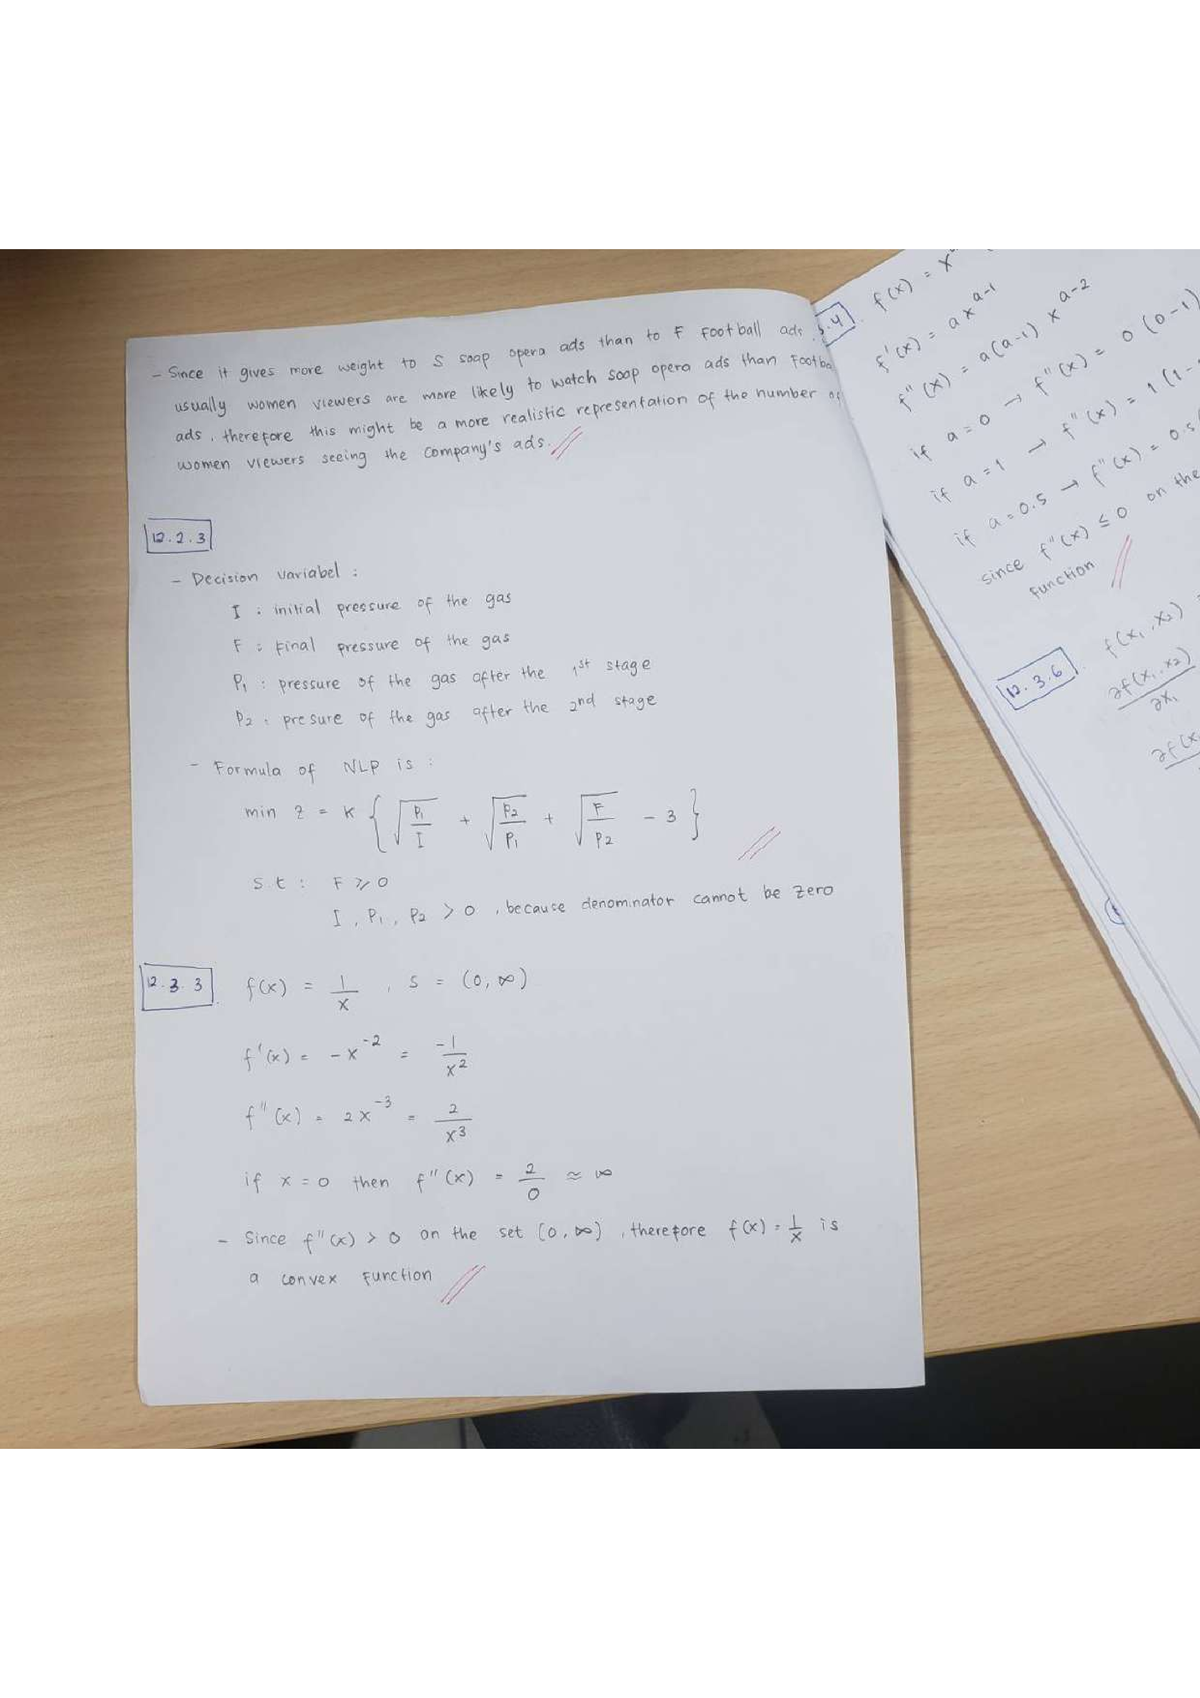 - Since it gives more weight to S soap opera ads than to F Football ads.
usually women viewers are more likely to watch soop opera ads than
ads. therefore this might be a more realistic representation of the number of
women viewers seeing the company's ads.
12.2.3
- Decision variabel :
I : initial pressure of the gas
F : Final pressure of the gas
P1 : pressure of the gas after the 1st stage
P2 : presure of the gas after the 2nd stage
- Formula of NLP is :
min z = K { √(P1/I) + √(P2/P1) + √(F/P2) - 3 }
s.t : F ≥ 0
I, P1, P2 > 0, because denominator cannot be zero
12.3.3. f(x) = 1/x, S = (0, ∞)
f'(x) = -x^-2 = -1/x^2
f"(x) = 2x^-3 = 2/x^3
if x = 0 then f"(x) = 2/0 ≈ ∞
- Since f"(x) > 0 on the set (0, ∞), therefore f(x) = 1/x is
a convex function
f(x) =
f'(x) = a x^a-1
f"(x) = a(a-1) x^a-2
if a = 0 → f"(x) = 0 (0-1)
if a = 1 → f"(x) = 1 (1-
if a = 0.5 → f"(x) = 0.5
since f"(x) ≤ 0 on the
function
12.3.6. f(x1, x2) =
∂f(x1, x2)/∂x1